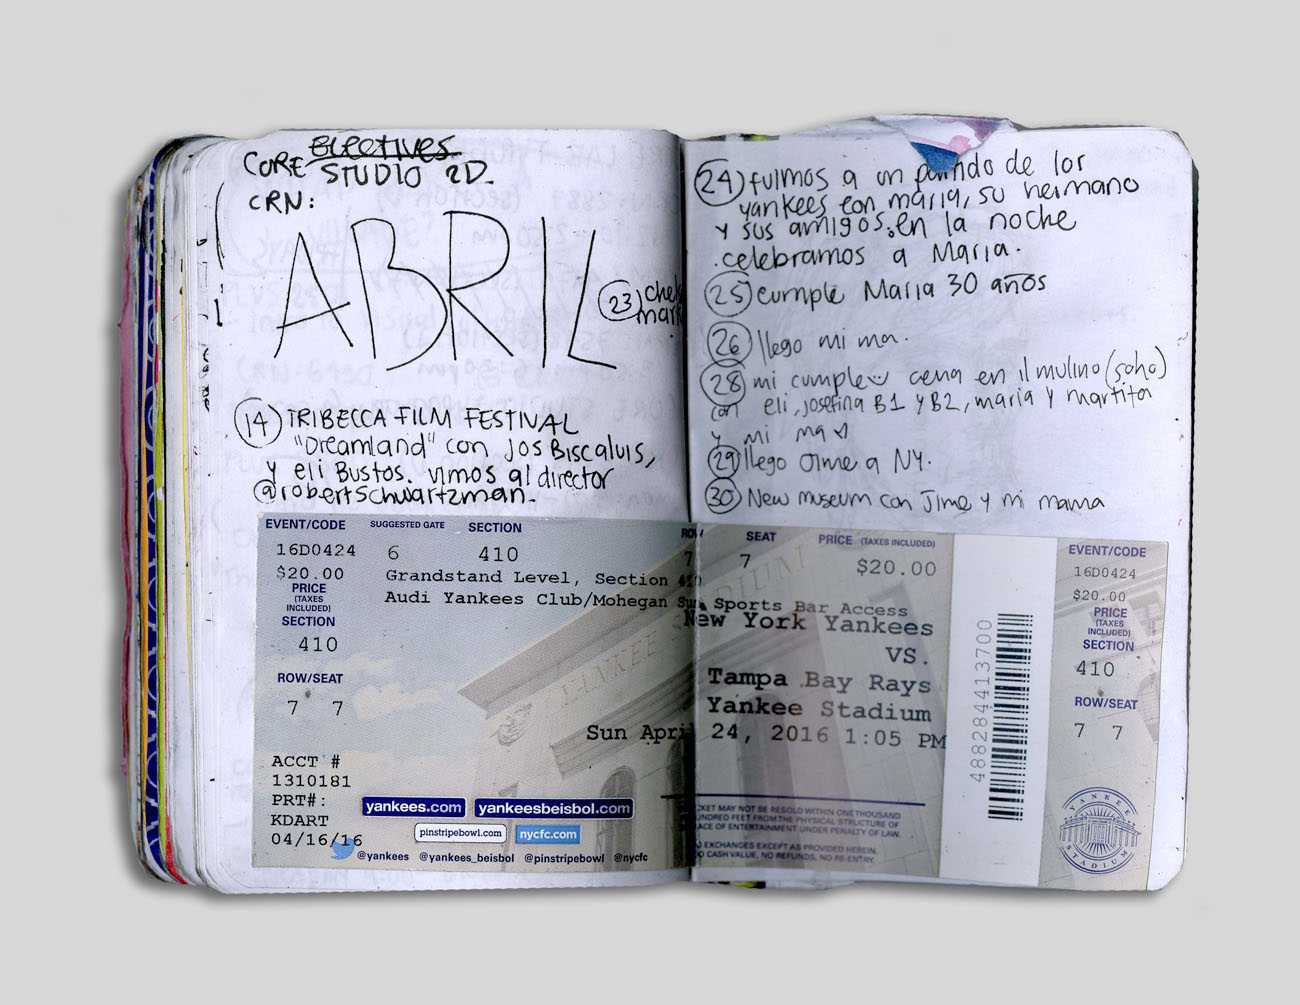 ELECTIVES
CORE STUDIO 2D.
CRN:
ABRIL
23
14 TRIBECCA FILM FESTIVAL
"Dreamland" con Jos Biscaluis,
y eli Bustos. vimos al director
@robertschwartzman.
24 fuimos a un partido de los
yankees con maria, su hermano
y sus amigos. en la noche
celebramos a Maria.
25 cumple Maria 30 años
26 llego mi ma.
28 mi cumple cena en il mulino (soho)
con eli, josefina B1 y B2, maria y martita
y mi ma
29 llego Jime a NY.
30 New museum con Jime y mi mama
EVENT/CODE SUGGESTED GATE SECTION ROW SEAT PRICE (TAXES INCLUDED)
16D0424 6 410 7 7 $20.00
$20.00 Grandstand Level, Section 410
PRICE Audi Yankees Club/Mohegan Sun Sports Bar Access
(TAXES
INCLUDED)
SECTION
410
ROW/SEAT
7 7
New York Yankees
VS.
Tampa Bay Rays
Yankee Stadium
Sun April 24, 2016 1:05 PM
YANKEE STADIUM
ACCT #
1310181
PRT#:
KDART
04/16/16
yankees.com yankeesbeisbol.com
pinstripebowl.com nycfc.com
@yankees @yankees_beisbol @pinstripebowl @nycfc
MAY NOT BE RESOLD WITHIN ONE THOUSAND
FEET FROM THE PHYSICAL STRUCTURE OF
OF ENTERTAINMENT UNDER PENALTY OF LAW.
EXCHANGES EXCEPT AS PROVIDED HEREIN,
CASH VALUE, NO REFUNDS, NO RE-ENTRY.
488284413700
EVENT/CODE
16D0424
$20.00
PRICE
(TAXES
INCLUDED)
SECTION
410
ROW/SEAT
7 7
YANKEE
STADIUM